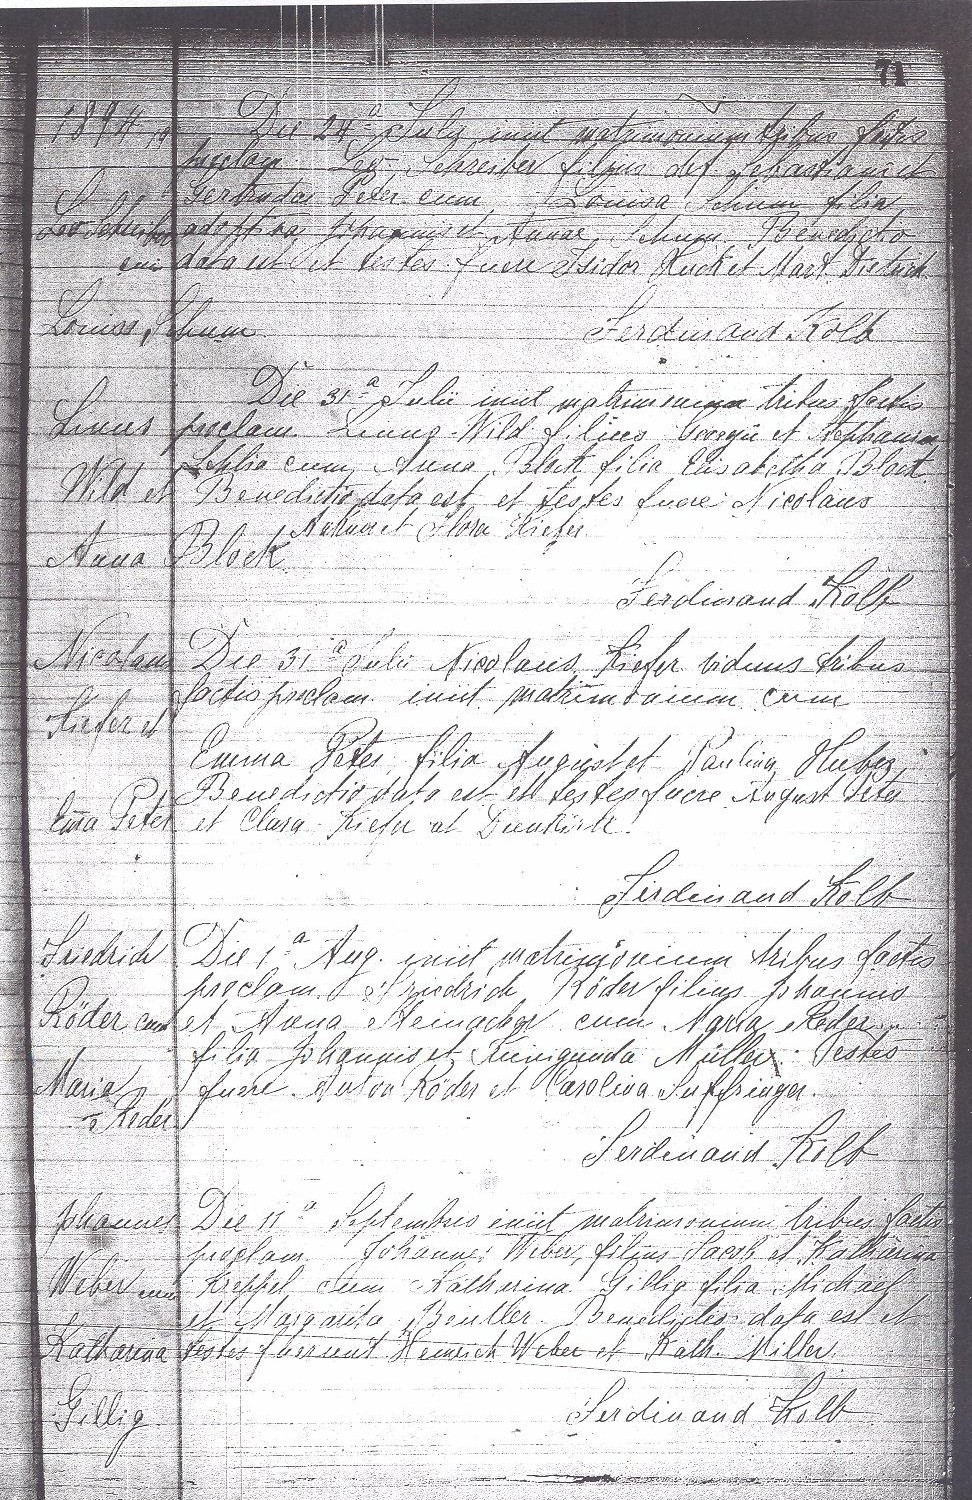 71
1894
Die 24ª July iniit matrimonium tribus factis
proclam. Leo Schreiber filius def. Sebastiani et
Gertrudas Peter cum Louisa Schum filia
adoptiva Johannis et Annae Schum. Benedictio
data est et testes fuere Isidor Huck et Mart. Dietrich
Leo Schreiber
cum
Louisa Schum
Ferdinand Kolb
Die 31ª Julii iniit matrimonium tribus factis
proclam. Linus Wild filius Georgii et Stephania
cum Anna Block filia Elisabetha Block.
Benedictio data est et testes fuere Nicolaus
et Flora Kiefer
Linus
Wild et
Anna Block
Ferdinand Kolb
Die 31ª Julii Nicolaus Kiefer viduus tribus
factis proclam. iniit matrimonium cum
Emma Peter filia August et Paulina Huber
Benedictio data est et testes fuere August Peter
et Clara Kiefer
Nicolaus
Kiefer et
Ema Peter
Ferdinand Kolb
Die 1ª Aug. iniit matrimonium tribus factis
proclam. Friedrich Röder filius Johannis
et Anna Steinacher cum Maria Reder
filia Johannis et Kunigunda Müller. Testes
fuere Anton Röder et Carolina Suffringer.
Friedrich
Röder cum
Maria
Reder
Ferdinand Kolb
Die 11ª Septembris iniit matrimonium tribus factis
proclam. Johannes Weber, filius Jacob et Katharina
Keppel cum Katharina Gillig filia Michael
et Margarita Beuller. Benedictio data est et
testes fuerunt Heinrich Weber et Kath. Miller
Johannes
Weber cum
Katharina
Gillig
Ferdinand Kolb